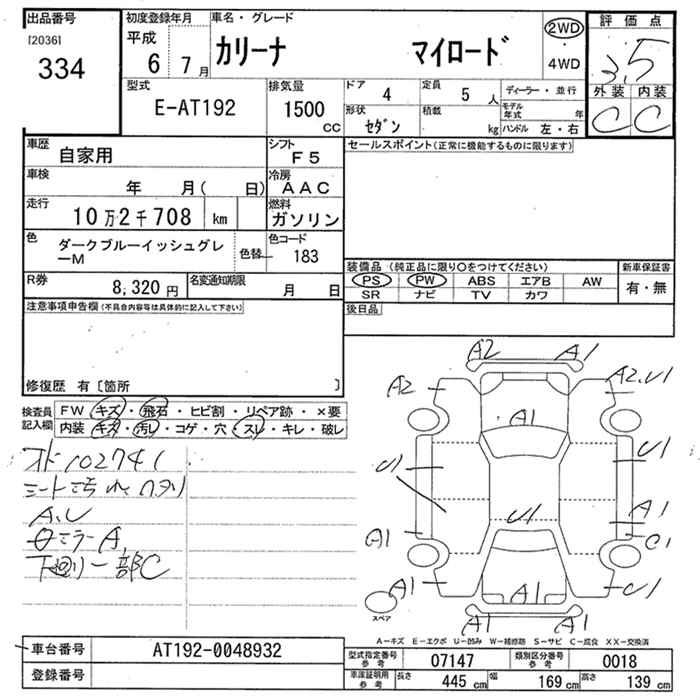 出品番号
[2036]
334
初度登録年月
平成
6 7月
車名・グレード
カリーナ マイロード
2WD
・
4WD
評価点
3.5
外装 内装
C C
型式
E-AT192
排気量
1500
cc
ドア
4
定員
5 人
形状
セダン
積載
kg
ディーラー・並行
モデル
年式 年
ハンドル 左・右
車歴
自家用
シフト
F5
車検
年 月( 日)
冷房
AAC
走行
10万2千708 km
燃料
ガソリン
色
ダークブルーイッシュグレ
ーM
色替
色コード
183
R券
8,320 円
名変通知期限
月 日
セールスポイント(正常に機能するものに限ります)
装備品 (純正品に限り○をつけてください)
PS PW ABS エアB AW
SR ナビ TV カワ
新車保証書
有・無
後日品
注意事項申告欄(不具合内容等は具体的に記入して下さい)
修復歴 有〔箇所 〕
検査員
記入欄
FW キズ・飛石・ヒビ割・リペア跡・×要
内装 キズ・汚レ・コゲ・穴・スレ・キレ・破レ
オド102741
A,U
下廻り一部C
A2 A1
A2 A2,U1
A1
U1 U1
U1
A1 A1
C1
A1 A1 U1
A1 A1
スペア
A-キズ E-エクボ U-凹み W-補修跡 S-サビ C-腐食 XX-交換済
車台番号
AT192-0048932
登録番号
型式指定番号
参考
07147
類別区分番号
参考
0018
車庫証明用
参考
長さ
445 cm
幅
169 cm
高さ
139 cm